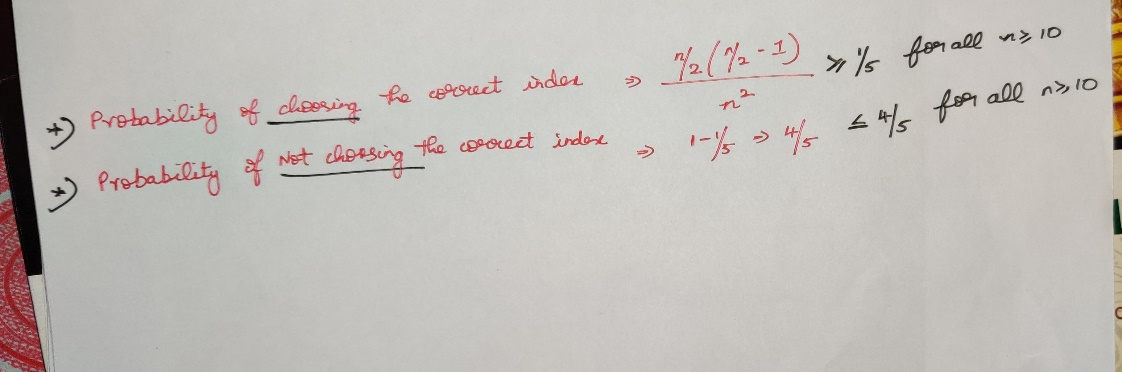 *) Probability of choosing the correct index ⇒ n/2(n/2 - 1)/n² ≥ 1/5 for all n ≥ 10
*) Probability of Not choosing the correct index ⇒ 1-1/5 ⇒ 4/5 ≤ 4/5 for all n ≥ 10